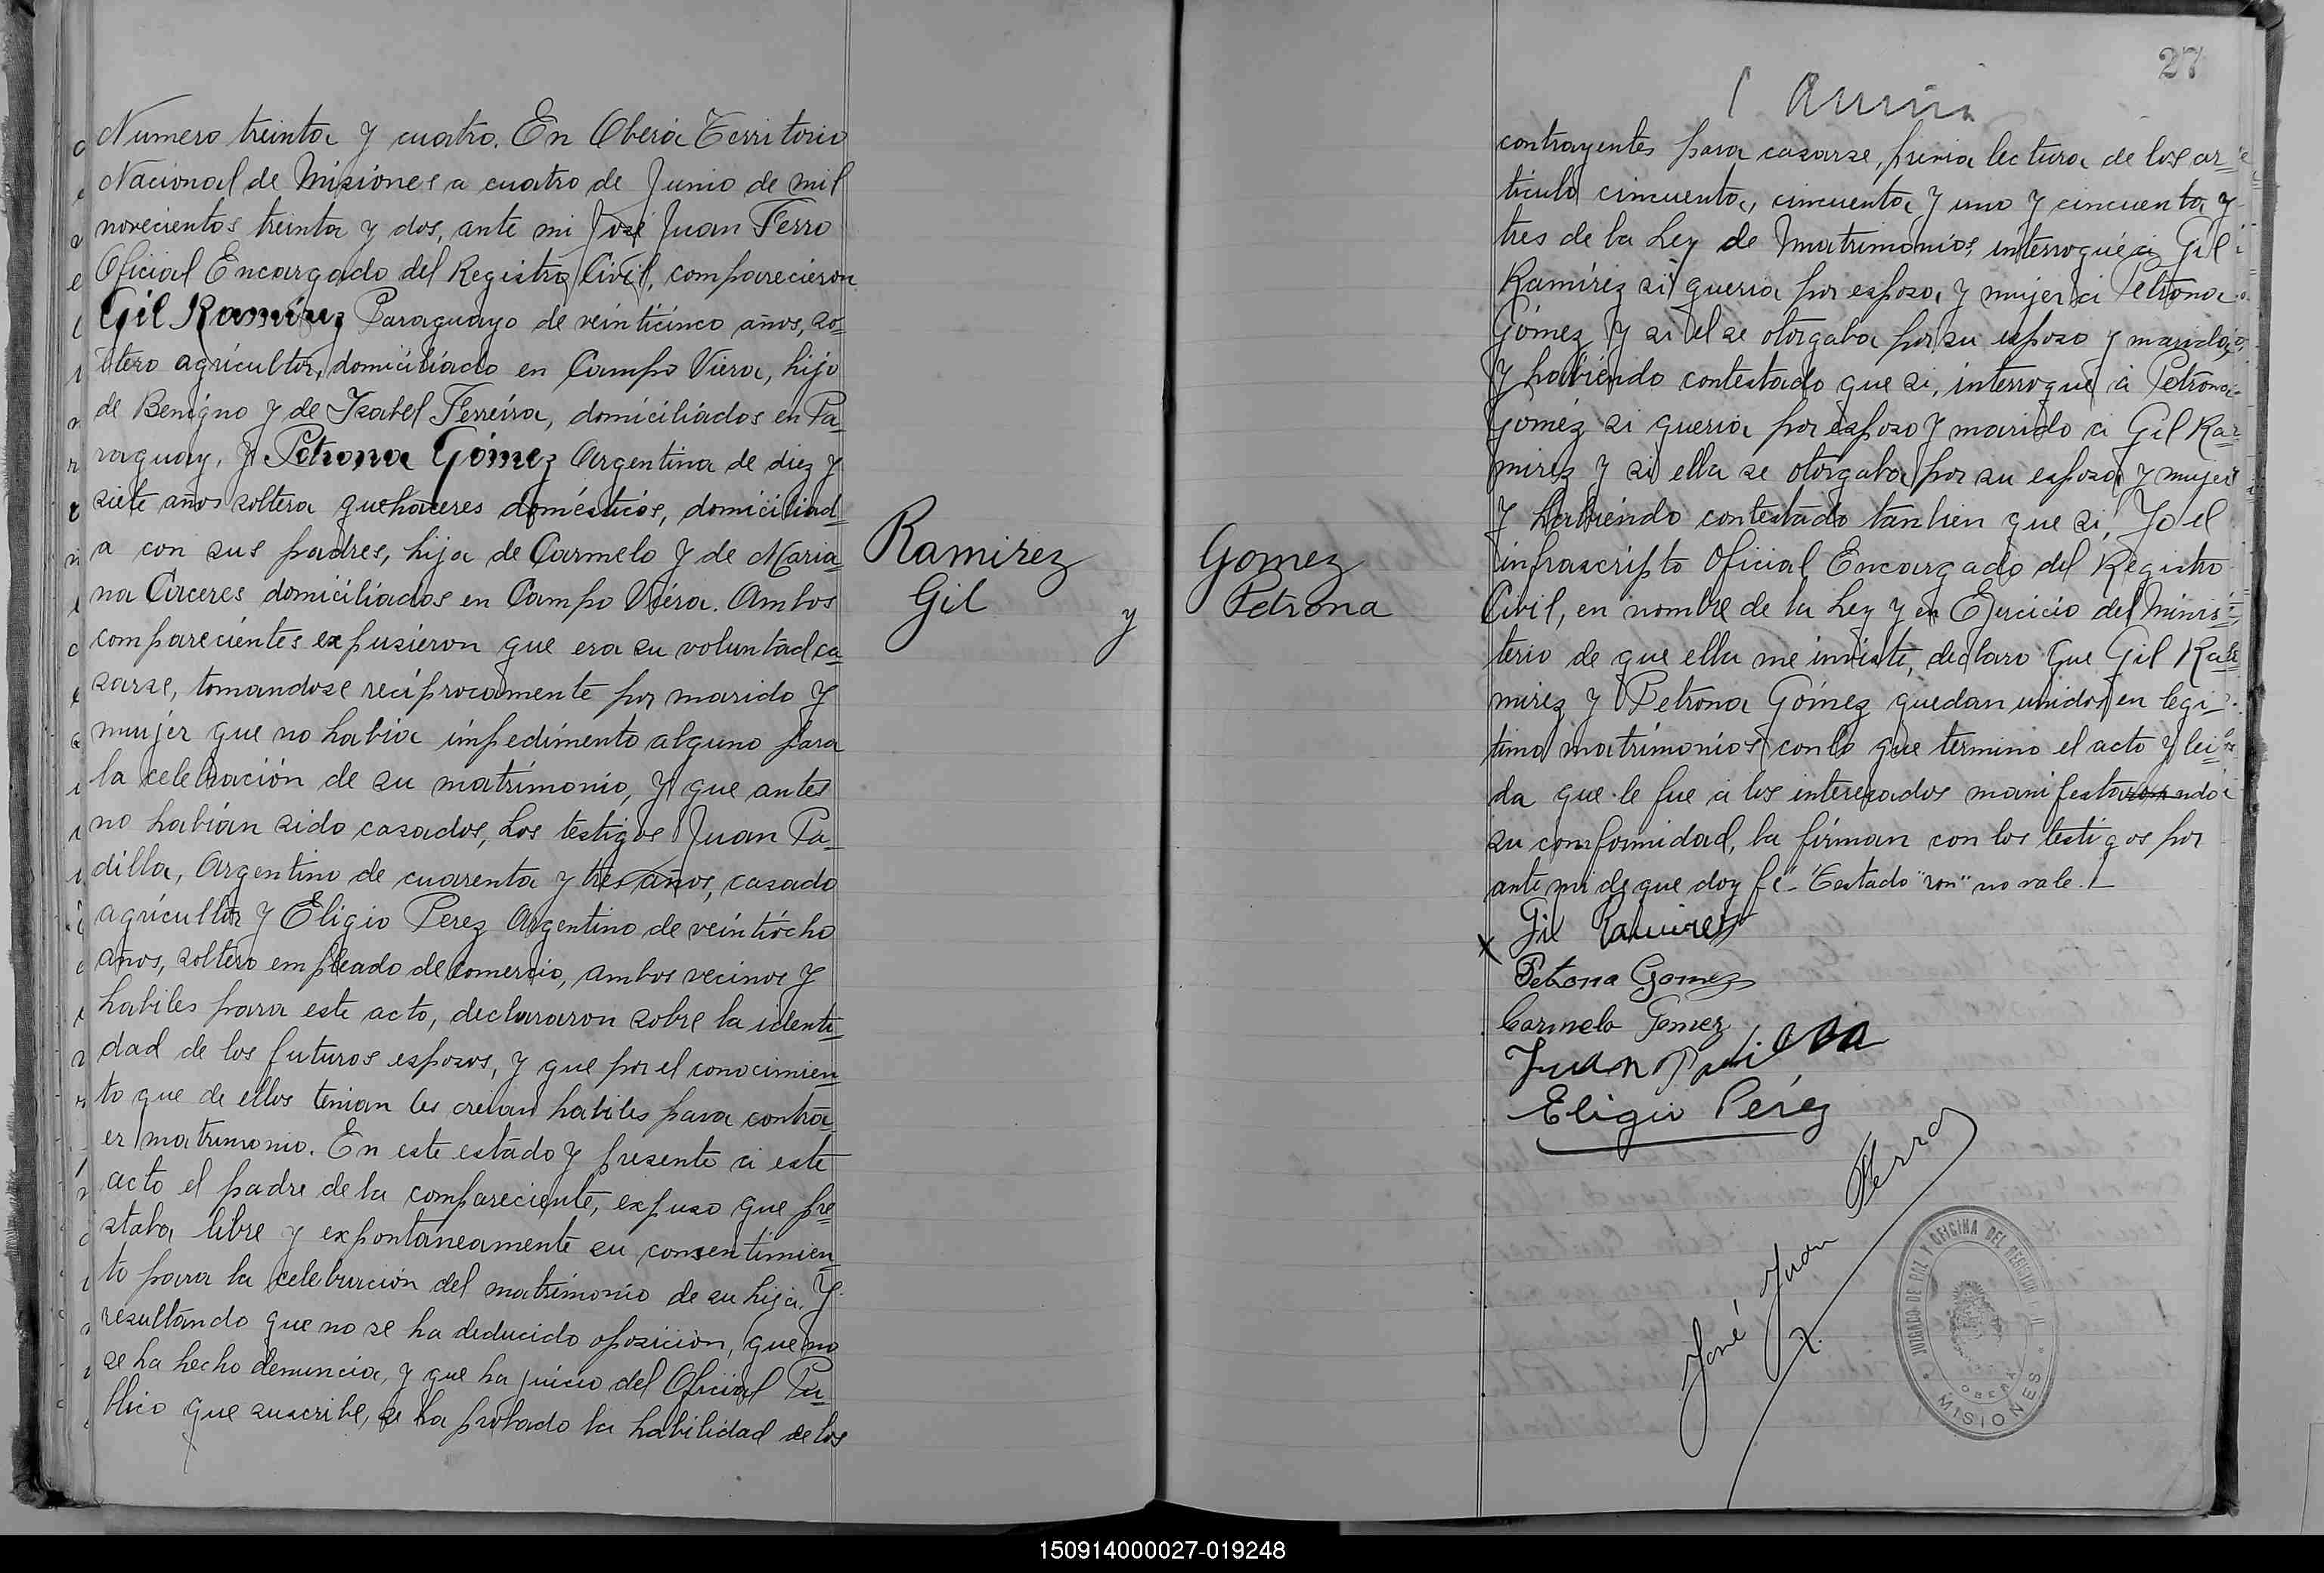 Numero treinta y cuatro. En Oberá Territorio
Nacional de Misiones a cuatro de Junio de mil
novecientos treinta y dos, ante mi José Juan Ferro
Oficial Encargado del Registro Civil, comparecieron
Gil Ramírez Paraguayo de veinticinco años, sol=
tero agricultor, domiciliado en Campo Viera, hijo
de Benigno y de Isabel Ferreira, domiciliados en Pa=
raguay, y Petrona Gómez Argentina de diez y
siete años soltera quehaceres domésticos, domiciliad=
a con sus padres, hija de Carmelo y de Maria=
na Caceres domiciliados en Campo Viera. Ambos
comparecientes expusieron que era su voluntad ca=
sarse, tomandose recíprocamente por marido y
mujer que no había impedimento alguno para
la celebración de su matrimonio, y que antes
no habían sido casados, Los testigos Juan Pa=
dilla, Argentino de cuarenta y tres años, casado
agricultor y Eligio Perez Argentino de veintiócho
años, soltero empleado de comercio, ambos vecinos y
habiles para este acto, declararon sobre la identi=
dad de los futuros esposos, y que por el conocimien=
to que de ellos tenian les creian habiles para contra=
er matrimonio. En este estado y presente a este
acto el padre de la compareciente, expuso que pre=
staba libre y expontaneamente su consentimien=
to para la celebración del matrimonio de su hija. Y
resultando que no se ha deducido oposición, que no
se ha hecho denuncia, y que ha juicio del Oficial Pu=
blico que suscribe, se ha probado la habilidad de los
Ramirez
Gil
y
Gomez
Petrona
27
contrayentes para casarse, previa lectura de los ar=
ticulo cincuenta, cincuenta y uno y cincuenta y
tres de la Ley de Matrimonios, interrogué a Gil
Ramírez si queria por esposa y mujer a Petrona
Gómez y si el se otorgaba por su esposo y marido,
y habiendo contestado que si, interrogué a Petrona
Gómez si queria por esposo y marido a Gil Ra=
mirez y si ella se otorgaba por su esposa y mujer
y habiendo contestado tambien que si, Yo el
infrascripto Oficial Encargado del Registro
Civil, en nombre de la Ley y en Ejercicio del Minis=
terio de que ella me inviste, declaro que Gil Ra=
mirez y Petrona Gómez quedan unidos en legi=
timo matrimonios con lo que termino el acto y lei=
da que le fue a los interesados manifestaron ando
su conformidad, la firman con los testigos por
ante mi de que doy fé - Testado "ron" no vale.
x Gil Ramirez
Petrona Gomez
Carmelo Gomez
Juan Padilla
Eligio Pérez
José Juan Ferro
JUZGADO DE PAZ Y OFICINA DEL REGISTRO
OBERA
MISIONES
150914000027-019248